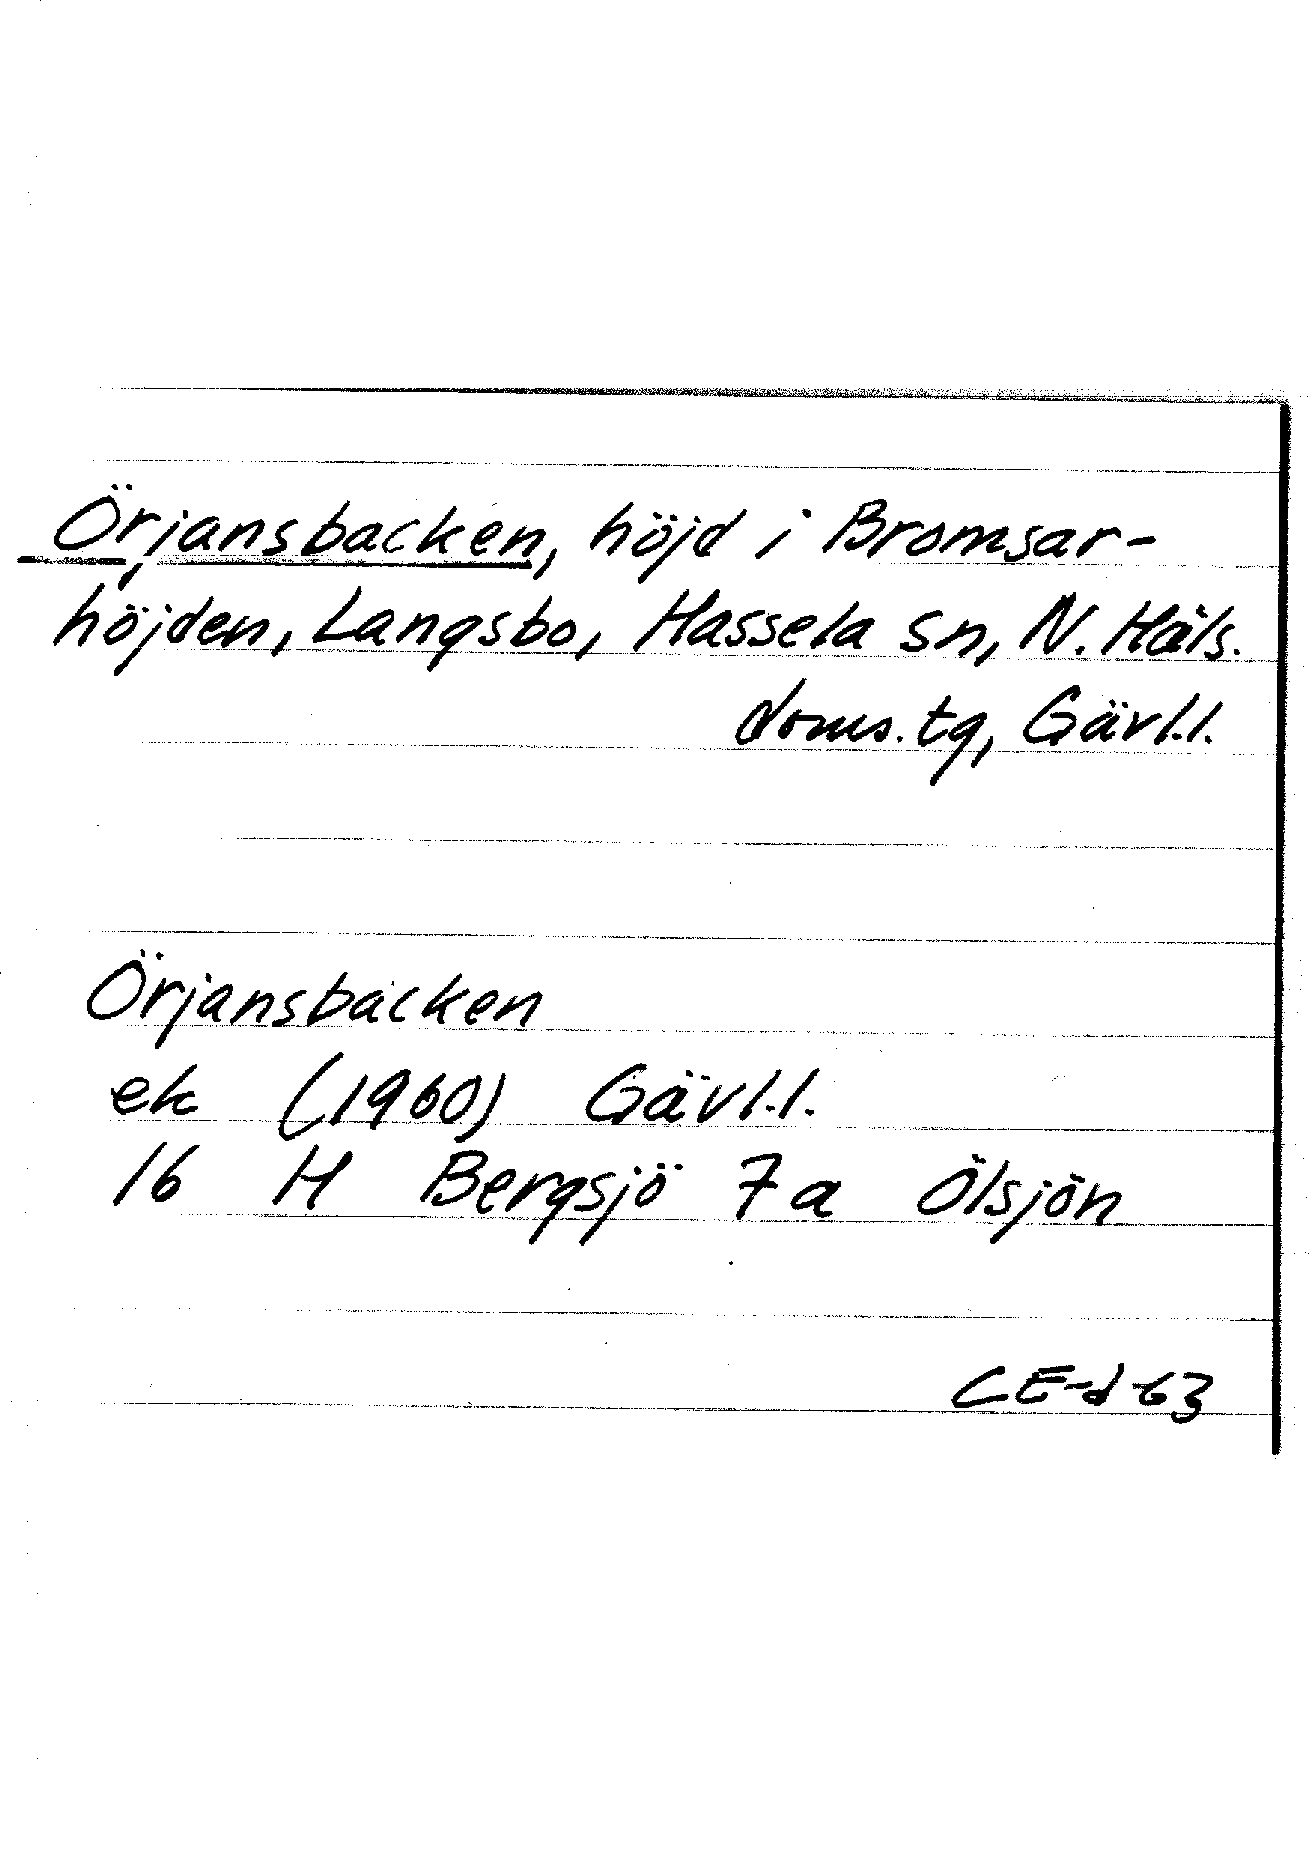 Örjansbacken, höjd i Bromsar-
höjden, Langsbo, Hassela sn, N. Häls.
doms.tg, Gävl.l.
Örjansbacken
ek (1960) Gävl.l.
16 H Bergsjö 7a Ölsjön
CE-d-63